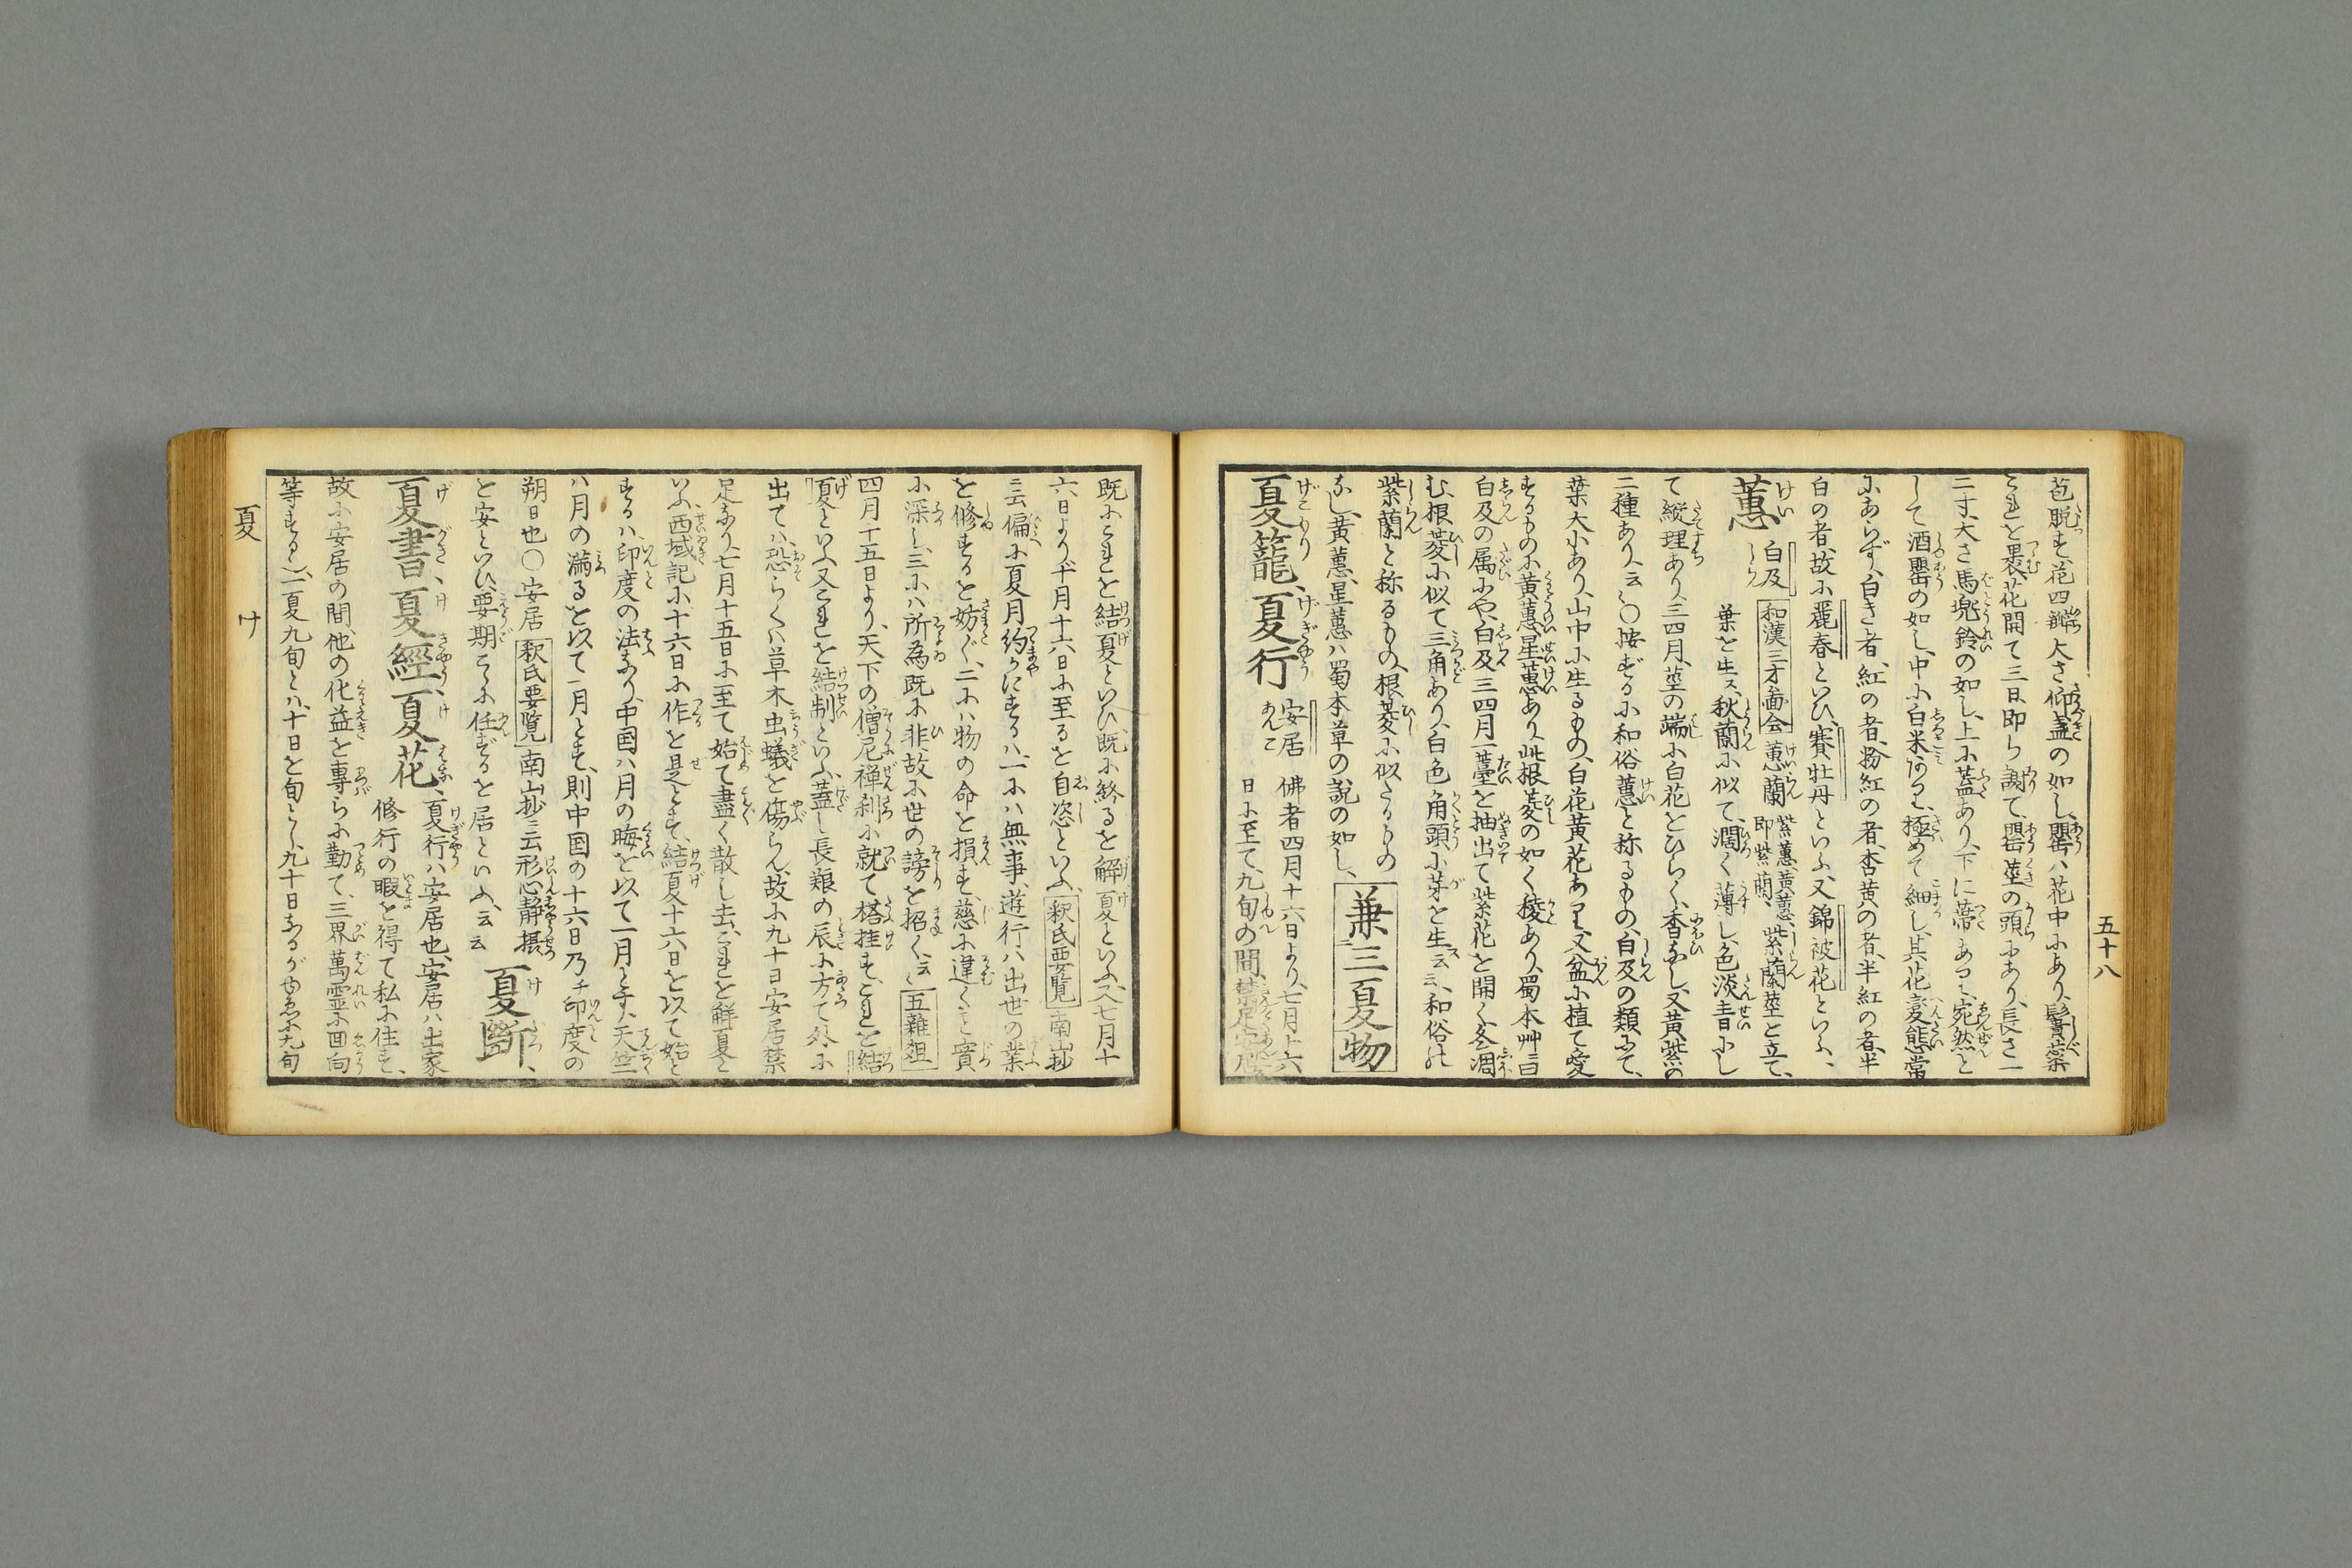 五十八
苞脱す、花四瓣、大さ仰盞の如し、罌ハ花中にあり、鬚蘂
これを裹、花開て三日、即ち謝て、罌、茎の頭にあり、長さ一
二寸、大さ馬兜鈴の如し、上に蓋あり、下に蔕あり、宛然と
して酒罌の如し、中に白米、極めて細し、其花変態常
にあらず、白き者、紅の者、粉紅の者、杏黄の者、半紅の者、半
白の者、故に麗春といひ、賽牡丹といふ、又錦被花といふ、
蕙 白及 和漢三才畨会 蕙蘭 紫蕙、黄蕙、即紫蘭、紫蘭茎を立て、
葉を生ス、秋蘭に似て、濶く薄し、色淡青にし
て縦理あり、三四月、茎の端に白花をひらく、香なし、又黄紫の
二種あり、云〻○按ずるに和俗蕙と称るもの、白及の類にて、
葉大小あり、山中に生るもの、白花黄花あり、又盆に植て愛
するものに黄蕙、星蕙あり、此根菱の如く稜あり、蜀本艸曰
白及の属にや、白及三四月一薹を抽出て紫花を開く、冬凋
む、根菱に似て三角あり、白色、角頭に芽を生ス、云〻、和俗に
紫蘭と称るもの、根菱に似たるもの
なし、黄蕙、星蕙ハ蜀本草の説の如し、 兼三夏物
夏籠、夏行 安居 佛者四月十六日より、七月十六
日に至て、九旬の間、禁足安居
既にこれを結夏といひ、既に終るを解夏といふ、又七月十
六日より、十月十六日に至るを自恣といふ、釈氏要覧 南山抄
云偏に夏月約かにするハ一にハ無事、遊行ハ出世の業
を修するを妨ぐ、二にハ物の命を損す、慈に違くこと實
に深し、三にハ所為既に非、故に世の謗を招く、云〻 五雜俎
四月十五日より、天下の僧尼禅刹に就て搭挂す、これを結
夏といふ、又これを結制といふ、蓋し長養の辰に方て、外に
出てハ、恐らくハ草木虫蟻を傷らん、故に九十日安居禁
足なり、七月十五日に至て、始て盡く散し去、これを解夏と
いふ、西域記に十六日に作を是とす、結夏十六日を以て始と
するハ、印度の法なり、中国ハ月の晦を以て一月とす、天竺
ハ月の満るを以て一月とす、則中国の十六日乃チ印度の
朔日也○安居 釈氏要覧 南山抄云形心静摂
を安といひ、要期こゝに住ずるを居といふ、云云 夏斷、
夏書、夏經、夏花、 夏行ハ安居也、安居ハ出家
修行の暇を得て私に住す、
故に安居の間、他の化益を專らに勤て、三界萬霊に回向
等するし、一夏九旬とハ、十日を旬とし、九十日なるがゆゑに九旬
夏 け